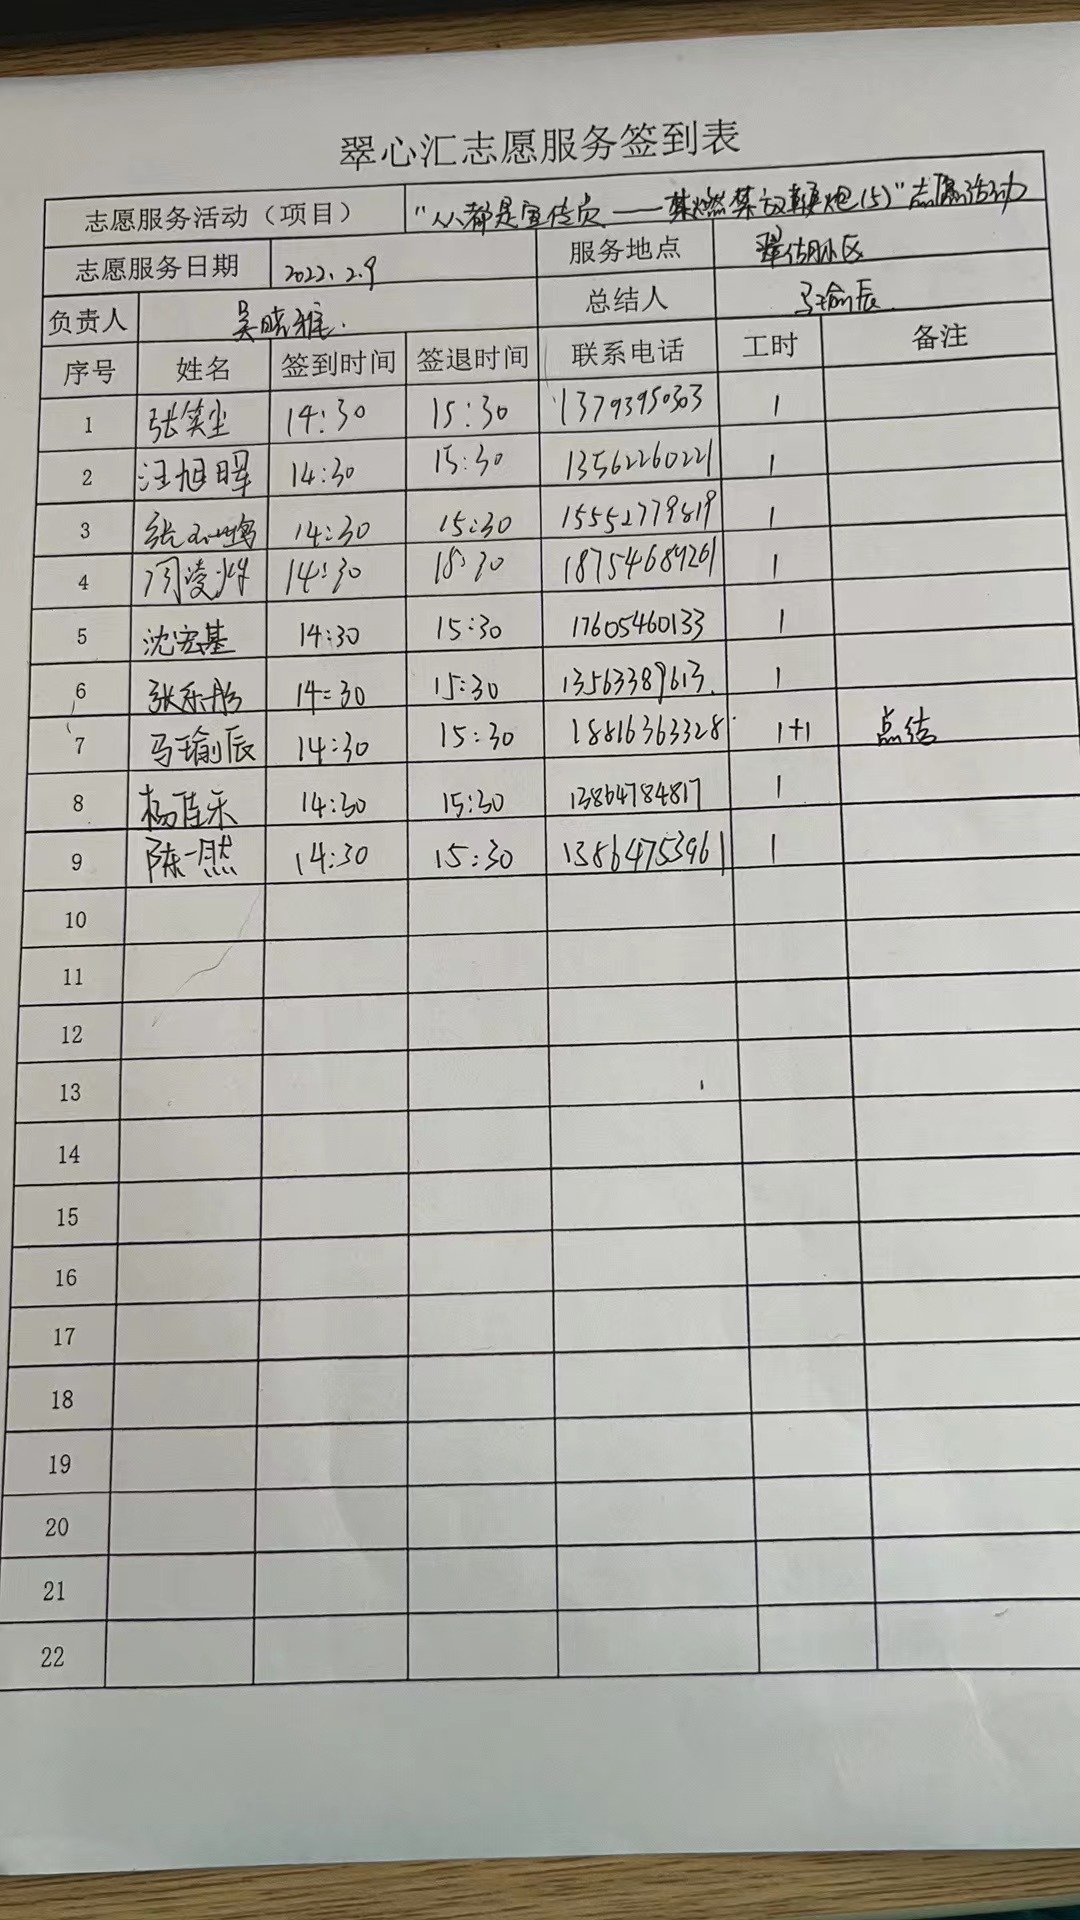 翠心汇志愿服务签到表
志愿服务活动（项目） "人人都是宣传员——禁燃禁放鞭炮(5)"志愿活动
志愿服务日期 2022.2.9 服务地点 小区
负责人 吴晓雅. 总结人 马瑜辰
序号 姓名 签到时间 签退时间 联系电话 工时 备注
1 张笑尘 14:30 15:30 13793950303 1
2 汪旭晖 14:30 15:30 13562260221 1
3 14:30 15:30 15552779819 1
4 周凌 14:30 18:30 18754689261 1
5 沈宏基 14:30 15:30 17605460133 1
6 张乐彤 14:30 15:30 13563389613. 1
7 马瑜辰 14:30 15:30 18816363328 1+1 总结
8 杨佳乐 14:30 15:30 13864784817 1
9 陈一然 14:30 15:30 13864753961 1
10
11
12
13
14
15
16
17
18
19
20
21
22